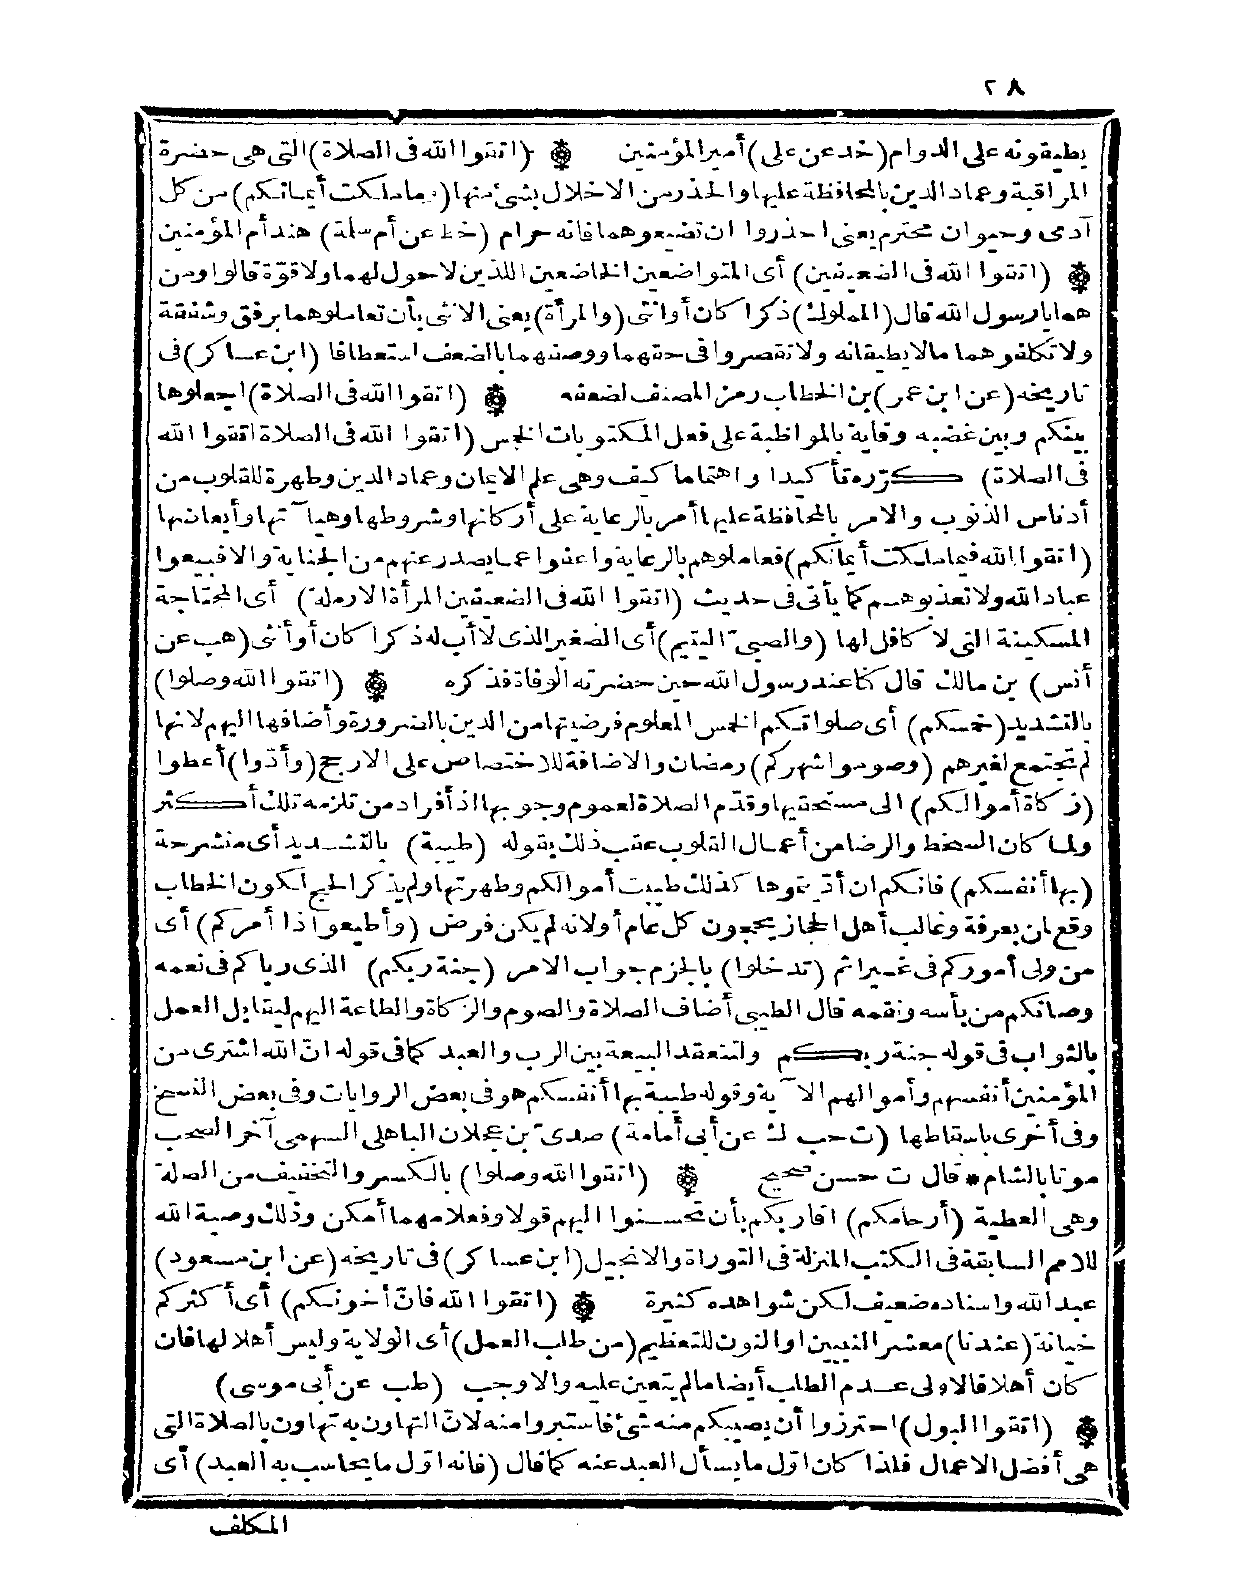 ٢٨
يطيقونه على الدوام (خد عن على) أمير المؤمنين ۞ (اتقوا الله فى الصلاة) التى هى حضرة
المراقبة وعماد الدين بالمحافظة عليها والحذر من الاخلال بشئ منها (وما ملكت أيمانكم) من كل
آدمى وحيوان محترم يعنى احذروا ان تضيعوهما فانه حرام (خط عن أم سلمة) هند أم المؤمنين
۞ (اتقوا الله فى الضعيفين) أى المتواضعين الخاضعين اللذين لا حول لهما ولا قوّة قالوا ومن
هما يارسول الله قال (المملوك) ذكرا كان أو انثى (والمرأة) يعنى الانثى بأن تعاملوهما برفق وشفقة
ولا تكلفوهما ما لا يطيقانه ولا تقصروا فى حقهما ووصفهما بالضعف استعطافا (ابن عساكر) فى
تاريخه (عن ابن عمر) بن الخطاب رمز المصنف لضعفه ۞ (اتقوا الله فى الصلاة) اجعلوها
بينكم وبين غضبه وقاية بالمواظبة على فعل المكتوبات الخمس (اتقوا الله فى الصلاة اتقوا الله
فى الصلاة) كرّره تأكيدا واهتماما كيف وهى علم الايمان وعماد الدين وطهرة للقلوب من
أدناس الذنوب والامر بالمحافظة عليها أمر بالرعاية على أركانها وشروطها وهيآتها وأبعاضها
(اتقوا الله فيما ملكت أيمانكم) فعاملوهم بالرعاية واعفوا عما يصدر عنهم من الجناية والا فبيعوا
عباد الله ولا تعذبوهم كما يأتى فى حديث (اتقوا الله فى الضعيفين المرأة الارملة) أى المحتاجة
المسكينة التى لا كافل لها (والصبىّ اليتيم) أى الصغير الذى لا أب له ذكرا كان أو أنثى (هب عن
أنس) بن مالك قال كنا عند رسول الله حين حضرته الوفاة فذكره ۞ (اتقوا الله وصلوا)
بالتشديد (خمسكم) أى صلواتكم الخمس المعلوم فرضيتها من الدين بالضرورة وأضافها اليهم لانها
لم تجتمع لغيرهم (وصوموا شهركم) رمضان والاضافة للاختصاص على الارجح (وأدّوا) أعطوا
(زكاة أموالكم) الى مستحقيها وقدّم الصلاة لعموم وجوبها اذ أفراد من تلزمه تلك أكثر
ولما كان السخط والرضا من أعمال القلوب عقب ذلك بقوله (طيبة) بالتشديد أى منشرحة
(بها أنفسكم) فانكم ان أدّيتموها كذلك طيبت أموالكم وطهرتها ولم يذكر الحج لكون الخطاب
وقع لمن يعرفه وغالب أهل الحجاز يحجون كل عام أو لانه لم يكن فرض (وأطيعوا ذا أمركم) أى
من ولى أموركم فى غير اثم (تدخلوا) بالجزم جواب الامر (جنة ربكم) الذى رباكم فى نعمه
وصانكم من بأسه ونقمه قال الطيبى أضاف الصلاة والصوم والزكاة والطاعة اليهم ليقابل العمل
بالثواب فى قوله جنة ربكم ولتنعقد البيعة بين الرب والعبد كما فى قوله انّ الله اشترى من
المؤمنين أنفسهم وأموالهم الآية وقوله طيبة بها أنفسكم هو فى بعض الروايات وفى بعض النسخ
وفى أخرى باسقاطها (ت حب ك عن أبى أمامة) صدىّ بن عجلان الباهلى السهمى آخر الصحب
موتا بالشام * قال ت حسن صحيح ۞ (اتقوا الله وصلوا) بالكسر والتخفيف من الصلة
وهى العطية (أرحامكم) اقاربكم بأن تحسنوا اليهم قولا وفعلا مهما أمكن وذلك وصية الله
للامم السابقة فى الكتب المنزلة فى التوراة والانجيل (ابن عساكر) فى تاريخه (عن ابن مسعود)
عبد الله واسناده ضعيف لكن شواهده كثيرة ۞ (اتقوا الله فانّ أخونكم) أى أكثركم
خيانة (عندنا) معشر النبيين او النون للتعظيم (من طلب العمل) أى الولاية وليس أهلا لها فان
كان أهلا فالاولى عدم الطلب أيضا ما لم يتعين عليه والا وجب (طب عن أبى موسى)
۞ (اتقوا البول) احترزوا أن يصيبكم منه شئ فاستبروا منه لانّ التهاون به تهاون بالصلاة التى
هى أفضل الاعمال فلذا كان اوّل ما يسأل العبد عنه كما قال (فانه اوّل ما يحاسب به العبد) أى
المكلف